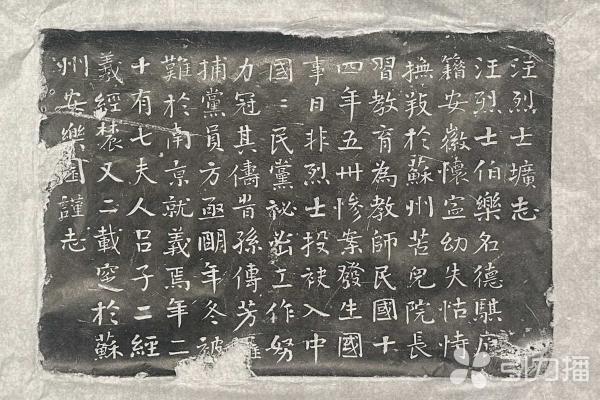 汪烈士壙志
汪烈士伯樂名德騏原
籍安徽懷寍幼失怙恃
撫敎於蘇州苦兒院長
習教育為教師民國十
四年五卅慘案發生國
事日非烈士投袂入中
國〻民黨祕密工作努
力冠其儔峕孫傳芳羅
捕黨員方亟朙年冬被
難於南京就義焉年二
十有七夫人呂子二經
義經農又二載窆於蘇
州安樂園謹志
引力播